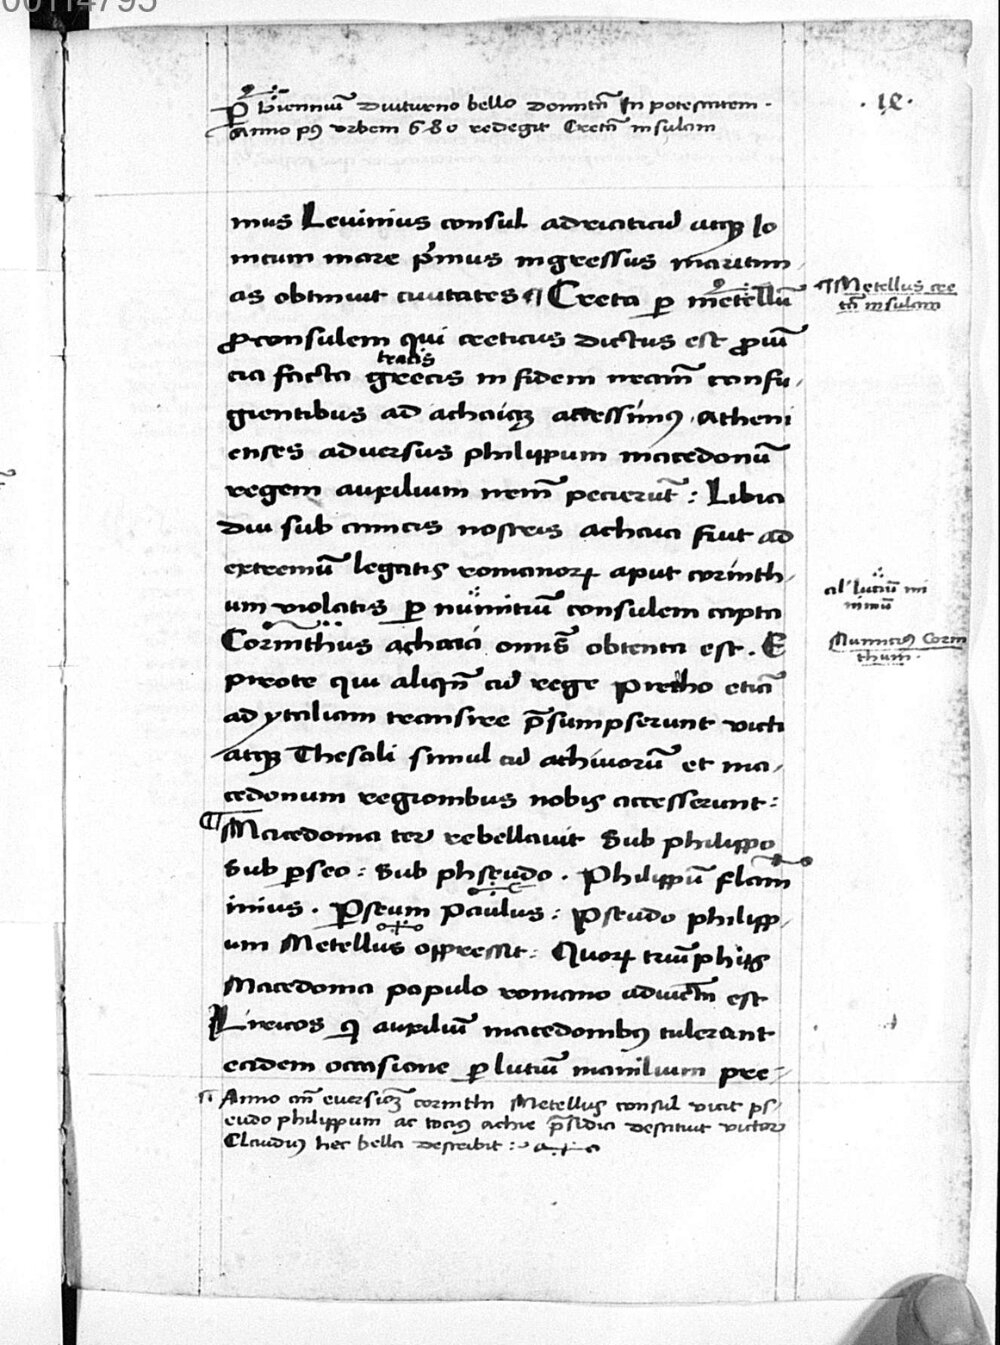 00114795
. 19 .
p̄ bienniū diuturno bello domitā In potestatem .
Anno pꝰ vrbem 680 redegit Cretā insulam
mus Leuinius consul adriaticū atqꝫ Io
nicum mare p̄mus ingressus maritim
as obtinuit ciuitates ¶ Creta ꝑ metellū
ꝓconsulem qui creticus dictus est ꝓuī
tracis
cia facta grecis in fidem nrām̄ confu
gientibus ad achaiqꝫ accessimꝰ . Atheni
enses aduersus philippum macedonū
regem auxilium nrm̄ pecierūt : Libia
diu sub amicis nostris achaia fuit ad
extremū legatis romanoꝝ aput corinth
um violatis ꝑ numitiū consulem capta
Corinthus achaia omīs obtenta est . E
pirote qui aliqn̄ cū rege pirrho etiā
ad ytaliam transire p̄sumpserunt victi
atqꝫ Thesali simul cū achiuorū et ma
cedonum regionibus nobis accesserunt :
¶ Macedonia ter rebellauit Sub philippo
Sub ꝑseo : Sub phseudo . Philippū flam
inius . ꝑseum Paulus : Pseudo philipp
um Metellus oppressit : Quoꝝ triūphis
Macedonia populo romano adiūcta est
Liricos qͥ auxiliū macedonibꝰ tulerant
eadem occasione ꝑ lutiū manilium pre
¶ Metellus cre
tā insulam
al' lutiū mi
nimū
Mumiciꝰ Corin
thum .
¶ Anno cū̄ euersioꝫ corinth Metellus consul vicit ps
eudo philippum ac tociꝰ achie p̄sidia destituit victor
Claudiꝰ hec bella describit :